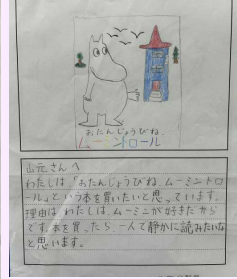 おたんじょうびね
ムーミントロール
山元さんへ
わたしは「おたんじょうびね ムーミントロ
ール」という本を買いたいと思っています。
理由はわたしは、ムーミンが好きだから
です。本を買ったら、一人で静かに読みたいな
と思います。